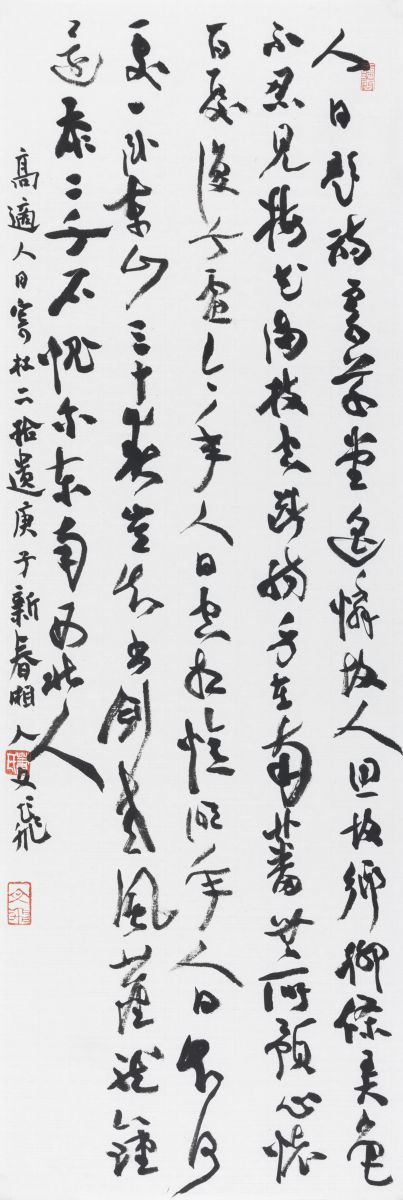 人日题诗寄草堂遥憐故人思故鄉柳條弄色
不忍见梅花满枝空断肠身在南蕃無所預心懷
百憂復千慮今年人日空相憶明年人日知何
處一卧東山三十春豈知書劍老風塵龍鍾
還忝二千石愧尔东南西北人
高適人日寄杜二拾遺庚子新春湘人文飛